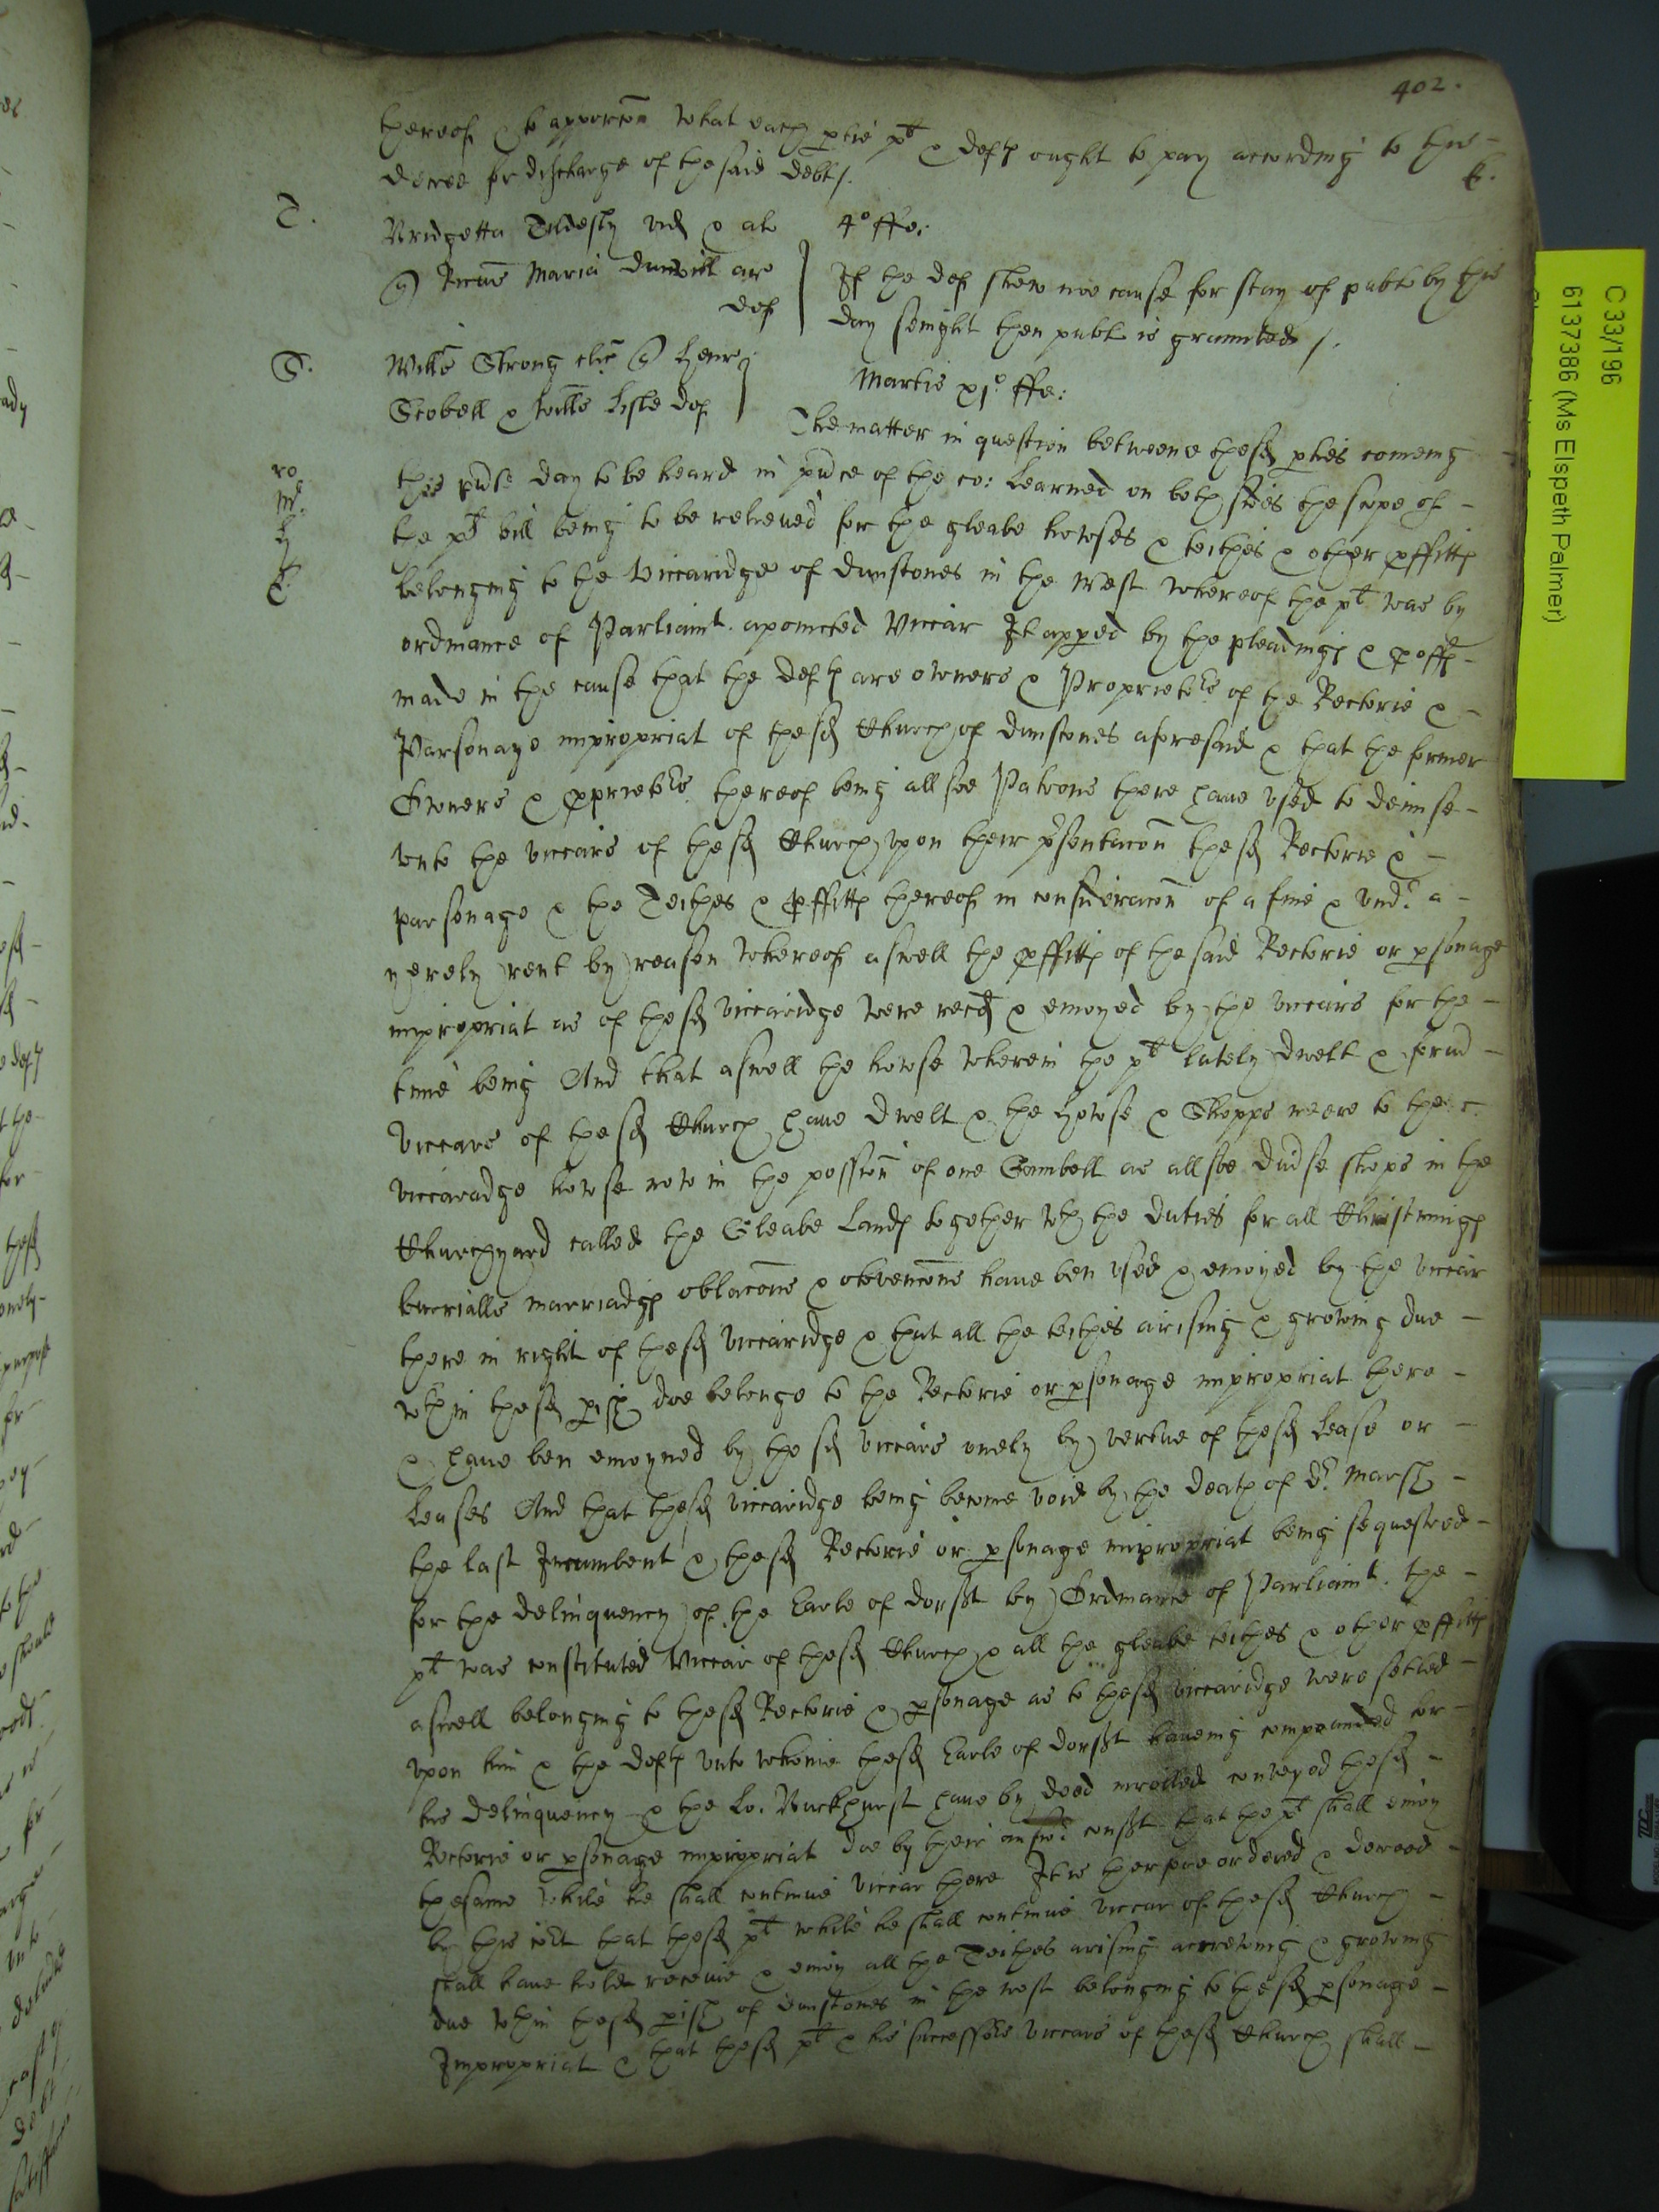 402.
thereof & to apporcon what each ptie plt & defts ought to pay according to this
decree for discharge of the said debt /.
k.
T.
Bridgetta Tildesly vid & al
4o ffe:
Maria
def
If the def shew noe cause for stay of publ by this
day senight then publ is graunted /.
S.
Willm Strong clic Henr
Scobell & Willm Lisle def
Martis xjo ffe:
The matter in question betweene these pties comeing
ro
this pnte day to be heard in pnce of the co: learned on both sides the scope of
mr
the plt bill being to be releived for the gleabe howses & teithes & other pffitts
belonging to the Viccaridge of Dunstones in the West whereof the plt was by
ordinance of Parliamt. apointed Viccar It appeed by the pleadings & proffs
made in the cause that the defts are owners & Proprietors of the Rectorie &
Parsonage impropriat of the sd Church of Dunstones aforesaid & that the former
Owners & pprietors thereof being allsoe Patrons there have used to demise
unto the viccars of the sd Church upon their psentacon the sd Rectorie &
parsonage & the Teithes & pffitts thereof in consideracon of a fine & undr a
yerely rent by reason whereof aswell the pffitts of the said Rectorie or psonage
impropriat as of the sd viccaridge were recd & enioyed by the viccars for the
time being And that aswell the howse wherein the plt lately dwelt & formd
viccars of the sd Church have dwelt & the howse & Shopps neere to the
viccaradge howse now in the possion of one Gambell as allsoe divse shops in the
Churchyard called the Gleabe Lands together wth the duties for all Christnings
burialls marriadgs oblacons & obvencons have ben used & enioyed by the viccar
there in right of the sd viccaridge & that all the teithes arising & growing due
wthin the sd pish doe belonge to the Rectorie or psonage impropriat there
& have ben enioyned by the sd viccars onely by vertue of the sd lease or
leases And that the sd viccaridge being become void by the death of Dr. Marsh
the last Incumbent & the sd Rectorie or psonage impropriat being sequestred
for the delinquency of the Earle of Dorsst by Ordinance of Parliamt. the
plt was constituted Viccar of the sd Church & all the gleabe teithes & other pffitts
aswell belonging to the sd Rectorie & psonage as to the sd viccaridge were setled
upon him & the defts unto whome the sd Earle of Dorsst haveing compounded for
his delinquency & the Lo. Buckhurst have by deed inrolled conveyed the sd
Rectorie or psonage impropriat doe by their answd consst that the plt shall enioy
the same while he shall continue viccar there It is therefore ordered & decreed
by this cort that the sd plt while he shall continue viccar of the sd Church
shall have hold receive & enioy all the Teithes arising accrewing & growing
due wthin the sd pish of Dunstones in the west belonging to the sd psonage
Impropriat & that the sd plt & his successors viccars of the sd Church shall
C 33/196
6137386 (Ms Elspeth Palmer)